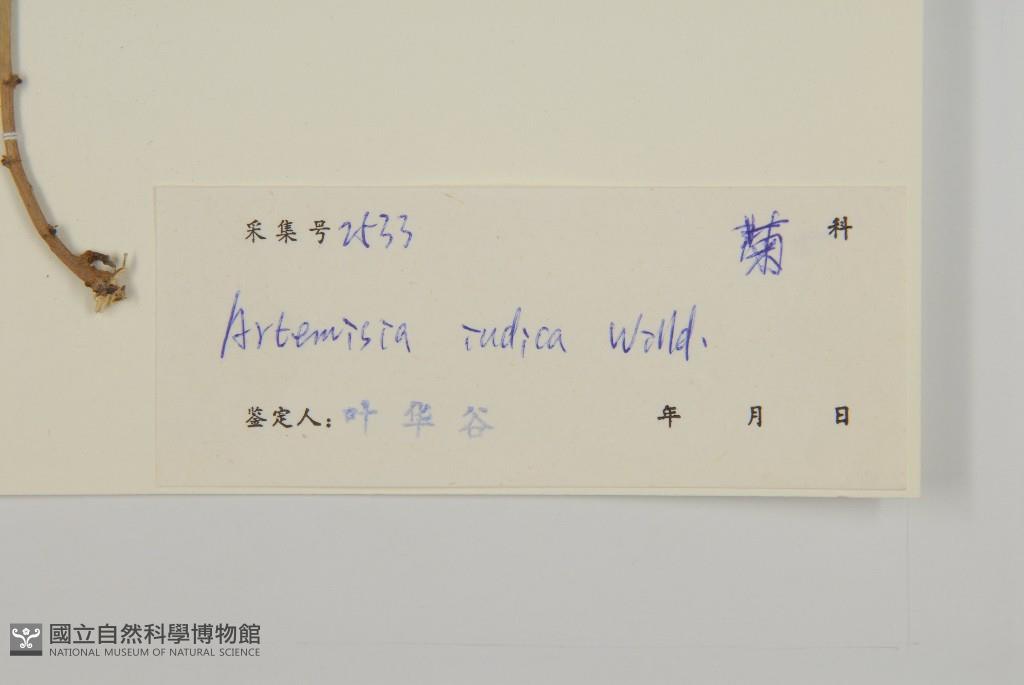 采集号 2533 菊 科
Artemisia indica Willd.
鉴定人: 叶华谷 年 月 日
國立自然科學博物館
NATIONAL MUSEUM OF NATURAL SCIENCE